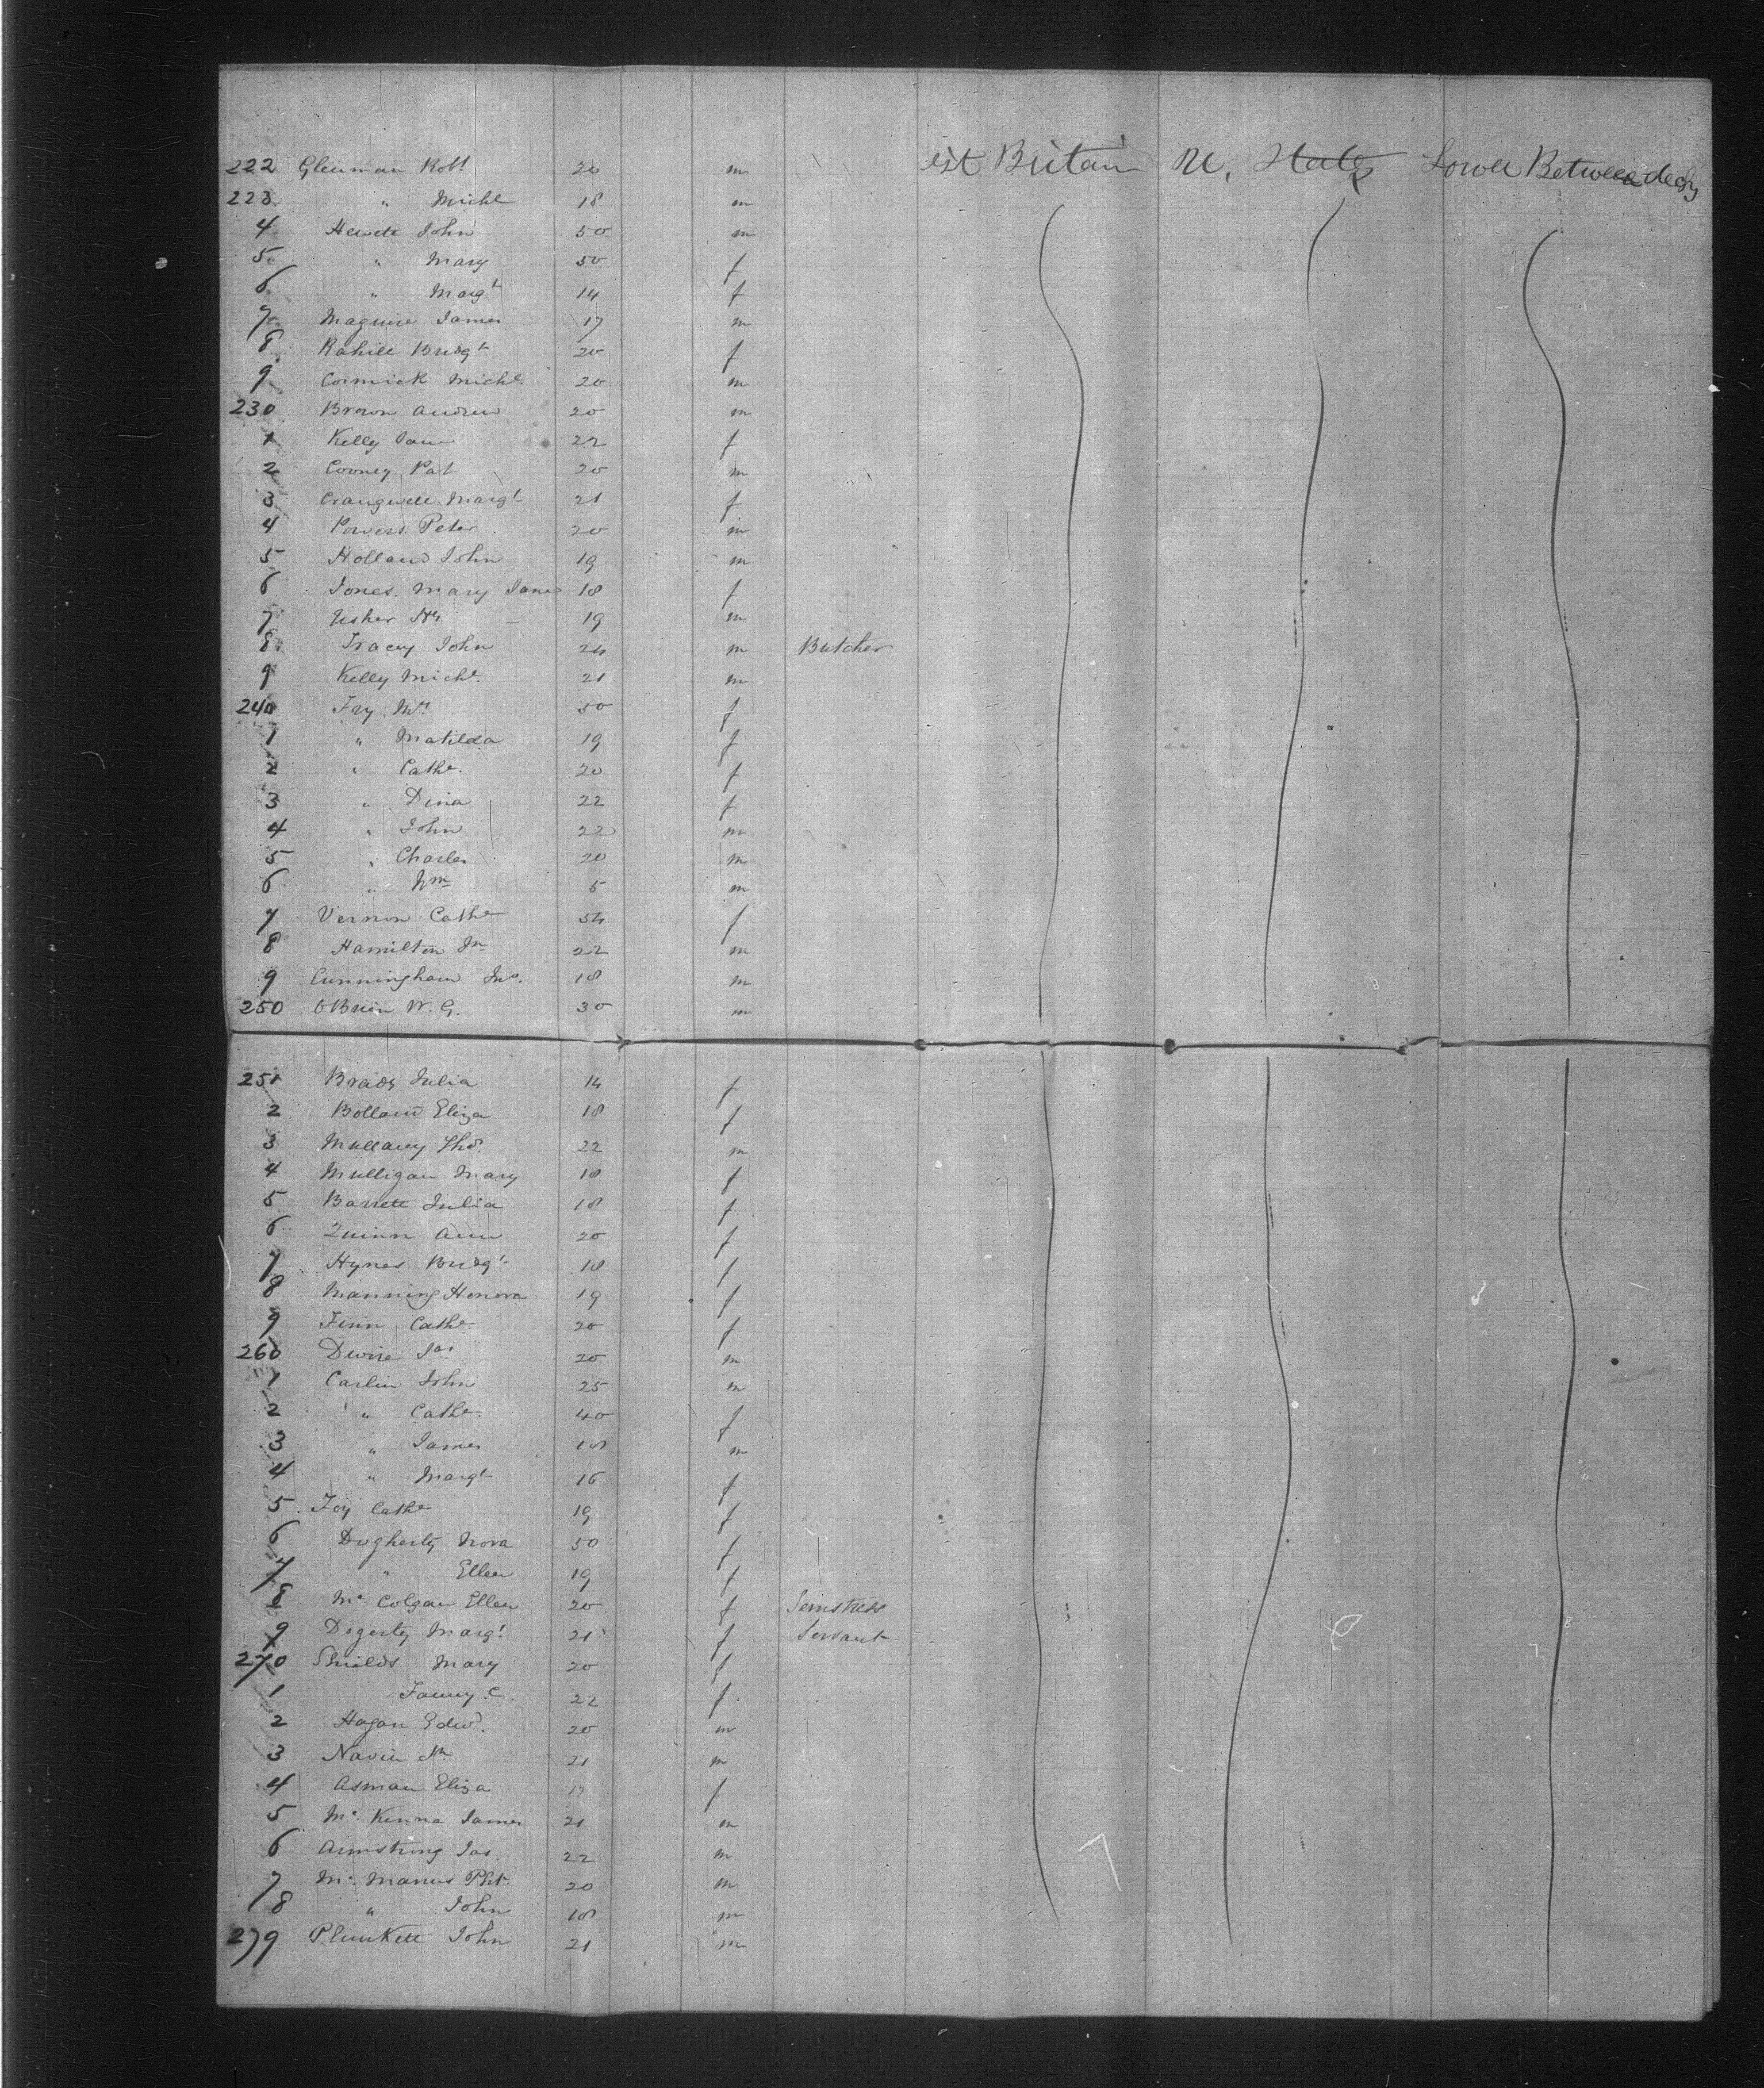 222 Glenman Robt 20 m Gt Britain U. States Lower Between decks
223 " Michl 18 m
4 Hewett John 50 m
5 " Mary 50 f
6 " Margt 14 f
7 Maguire James 17 m
8 Rahill Bridgt 20 f
9 Cormick Michl 20 m
230 Brown Andrew 20 m
1 Kelly Jane 22 f
2 Cooney Pat 20 m
3 Crangwell Margt 21 f
4 Powers Peter 20 m
5 Holland John 19 m
6 Jones Mary Jane 18 f
7 Usher Hy 19 m
8 Tracey John 24 m Butcher
9 Kelly Michl 21 m
240 Fry Mrs 50 f
1 " Matilda 19 f
2 " Cathe 20 f
3 " Dina 22 f
4 " John 22 m
5 " Charles 20 m
6 " Wm 5 m
7 Vernon Cathe 54 f
8 Hamilton Jn 22 m
9 Cunningham Jno. 18 m
250 OBrien W. G. 30 m
251 Brady Julia 14 f
2 Bolland Eliza 18 f
3 Mullany Thos 22 m
4 Mulligan Mary 18 f
5 Barrett Julia 18 f
6 Quinn Ann 20 f
7 Hynes Bridgt 18 f
8 Manning Honora 19 f
9 Finn Cathe 20 f
260 Dwire Jas 20 m
1 Carlin John 25 m
2 " Cathe 40 f
3 " James 18 m
4 " Margt 16 f
5 Foy Cathe 19 f
6 Dogherty Nora 50 f
7 " Ellen 19 f
8 Mc Colgan Ellen 20 f Seinstress
9 Dogerty Margt 21 f Servant
270 Shields Mary 20 f
1 Fanny C. 22 f
2 Hagan Edwd. 20 m
3 Navin 21 m
4 Asman Eliza 17 f
5 Mc Kenna James 21 m
6 Armstrong Jas. 22 m
7 Mc Manus Pht. 20 m
8 " John 18 m
279 Plunkett John 21 m